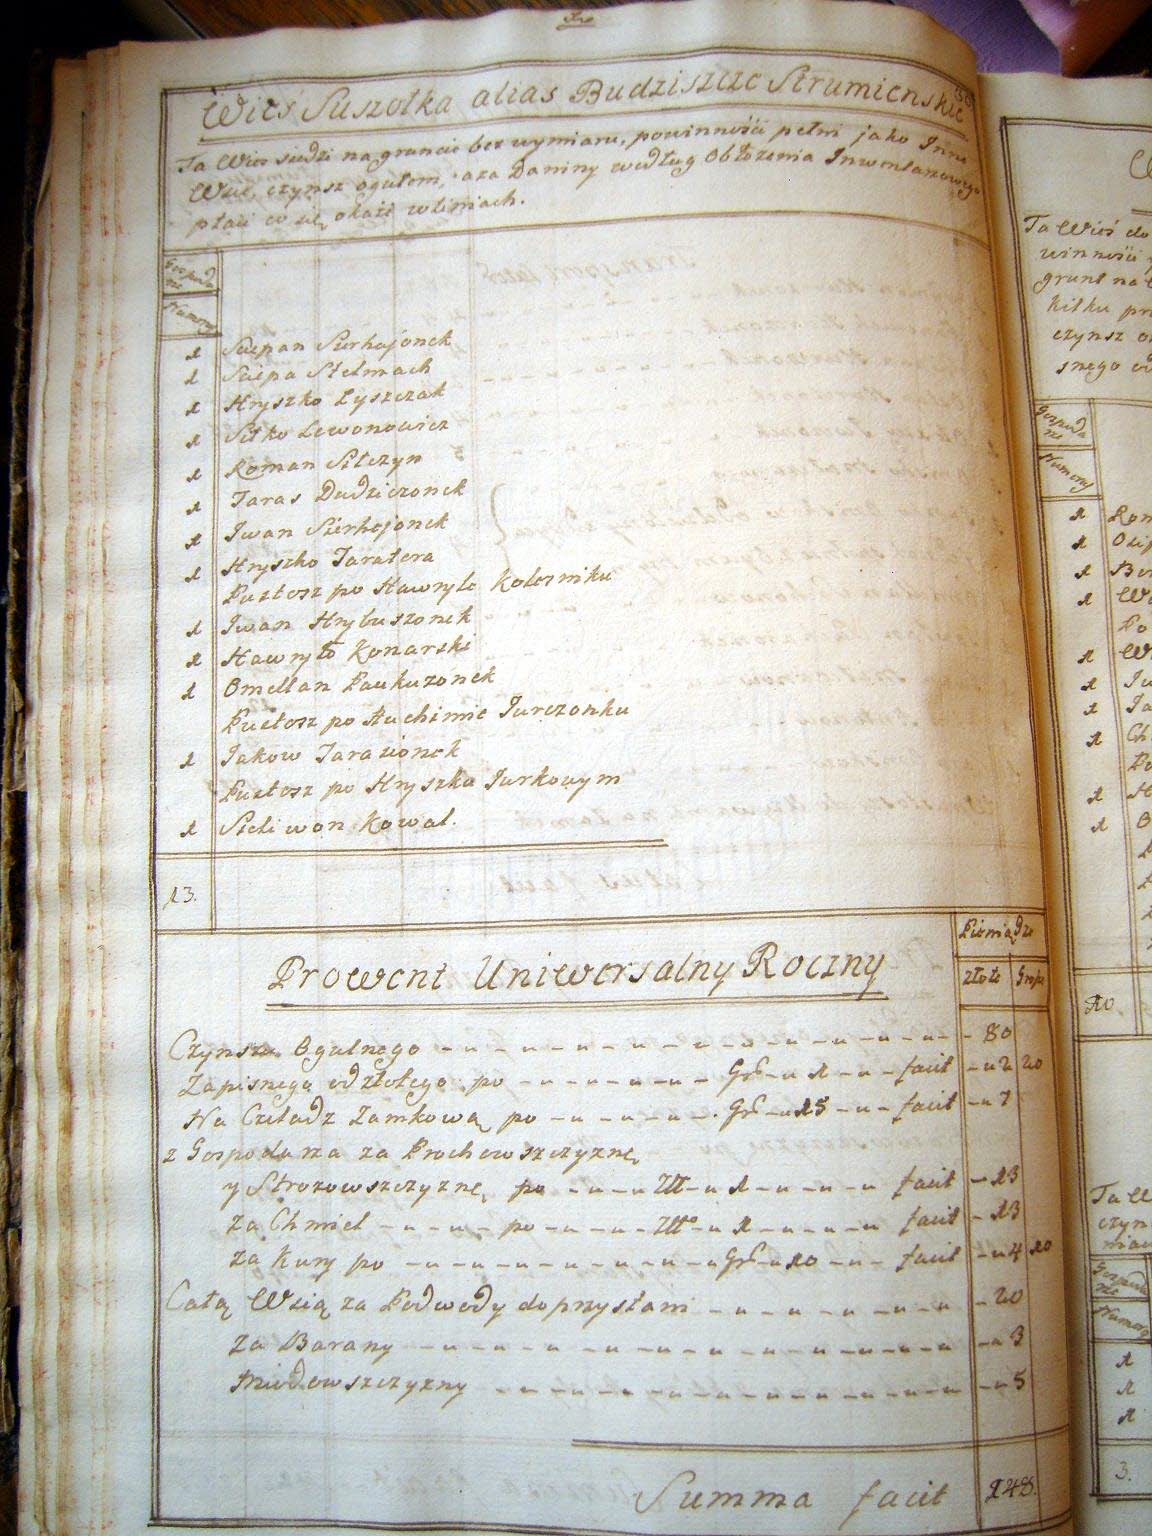 Wieś Suszołka alias Budziszcze Strumienskie
Ta Wieś siedzi na gruncie bez wymiaru, powinności pełni jako Inne
Wsie, czynsz ogułem, aza Daniny według Obłożenia Inwentarzowego
płaci co się okaże wliniach.
Gospoda
rze
Numery
1 Scepan Sierhajonek
1 Sciepa Stelmach
1 Hryszko Łyszczak
1 Siłko Lewonowicz
1 Roman Silczyn
1 Taras Dudziczonek
1 Iwan Sierhejonek
1 Hryszko Taratera
Pustosz po Hawryle Kolesniku
1 Iwan Hrybuszonek
1 Hawryło Konarski
1 Omellan Paukuzonek
Pustosz po Auchimie Jurczonku
1 Jakow Tarasionek
Pustosz po Hryszku Jurkowym
1 Sieliwon Kowal.
13.
Prowent Uniwersalny Roczny
Pieniądze
złote Grosze
Czynszu Ogulnego 80
Zapisnego odzłotego po Gr 1 facit 2 20
Na Czeladz Zamkową po Gr 15 facit 7
z Gospodarza za Prochowszczyznę
y Strozowszczyznę po Złł 1 facit 13
za Chmiel po Złł 1 facit 13
za Kury po Gr 10 facit 4 10
Całą Wsią za Podwody doprzystani 20
za Barany 3
Miodowszczyzny 5
Summa facit 148.
Ta Wieś do
winności
grunt na
kilku prę
czynsz o
snego od
Gospoda
rze
Numery
1 Rom
1
1
1
1
1
1
1
1
1
10
Ta W
czyn
Gospoda
rze
Numery
1
1
1
3.